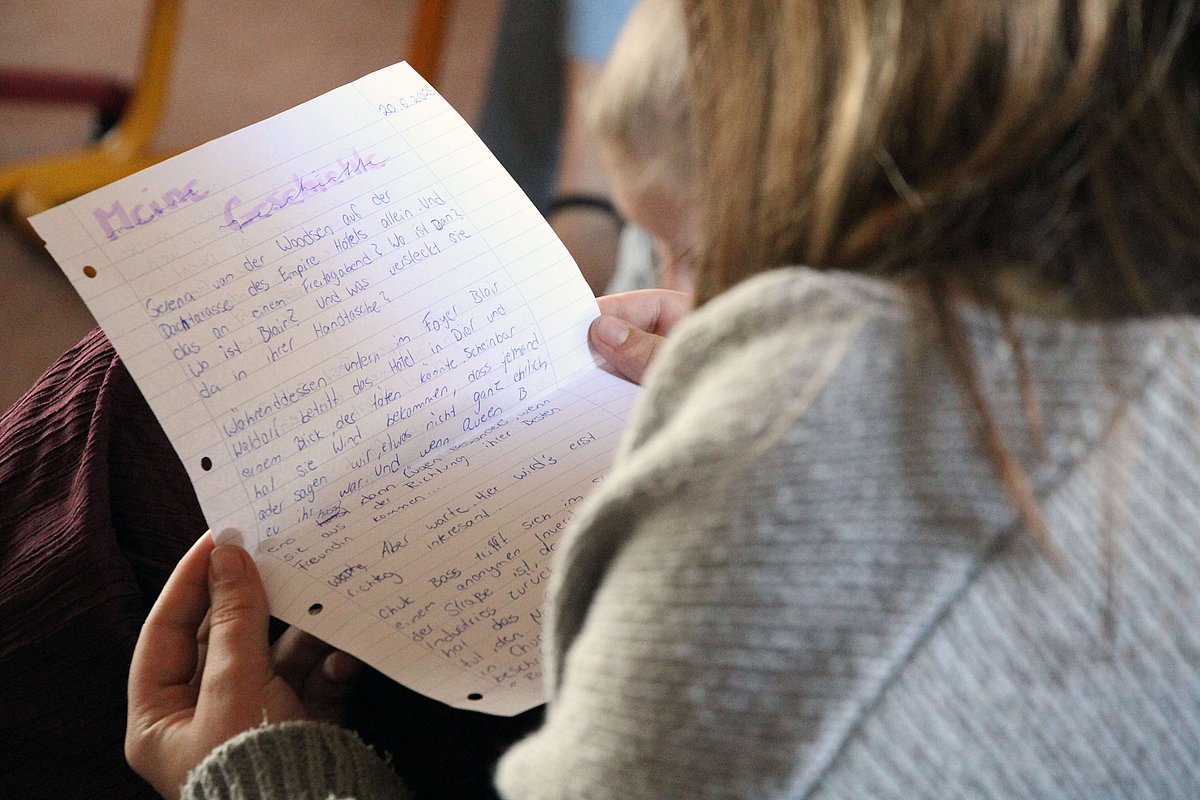 20.6.202
Meine Geschichte
Serena van der Woodsen auf der
Dachtarasse des Empire Hotels allein. Und
das an einem Freitagabend? Wo ist Dan?
Wo ist Blair? und was versteckt sie
da in ihrer Handtasche?
Währenddessen unten im Foyer Blair
Waldorf betritt das Hotel in Dior und
einem Blick, der töten könnte. Scheinbar
hat sie Wind bekommen, dass jemand
oder sagen wir, etwas nicht ganz ehrlich
zu ihr war. und wenn Queen B
eins dann Lügen. Besonders wenn
sie aus der Richtung ihrer besten
Freundin kommen...
Aber warte. Hier wird's erst
richtig interesand.
Chuk Bass trifft sich im
einem anonymen Inves
der Straße ist, dr
Industries zurück
hat das N
tut, den N
in Chu
besch